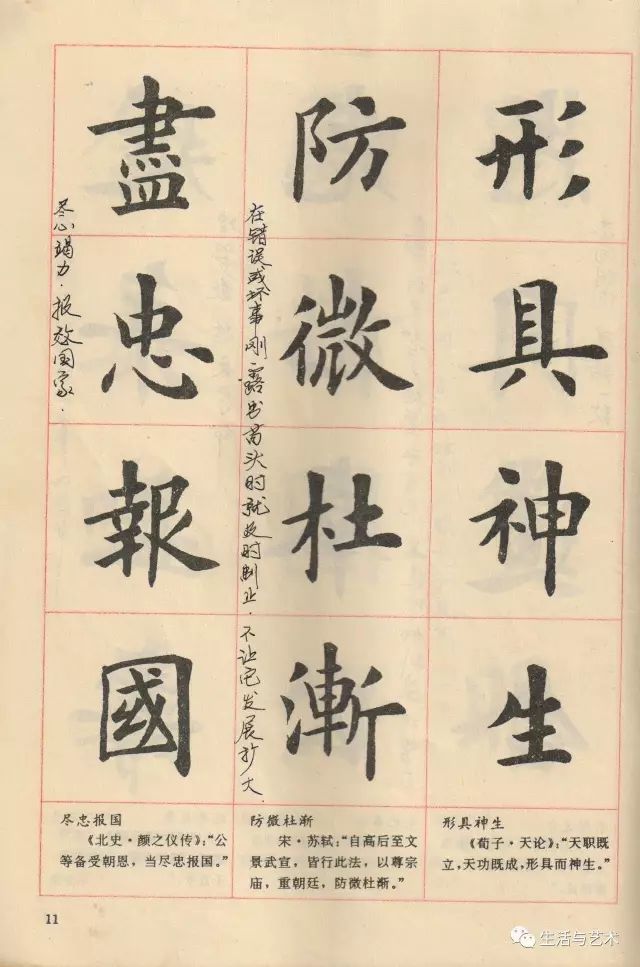 形具神生
防微杜漸
在错误或坏事刚露出苗头时就及时制止.不让它发展扩大.
盡忠報國
尽心竭力.报效国家.
形具神生
《荀子·天论》:“天职既
立,天功既成,形具而神生。”
防微杜渐
宋·苏轼:“自高后至文
景武宣,皆行此法,以尊宗
庙,重朝廷,防微杜渐。”
尽忠报国
《北史·颜之仪传》:“公
等备受朝恩,当尽忠报国。”
11
生活与艺术